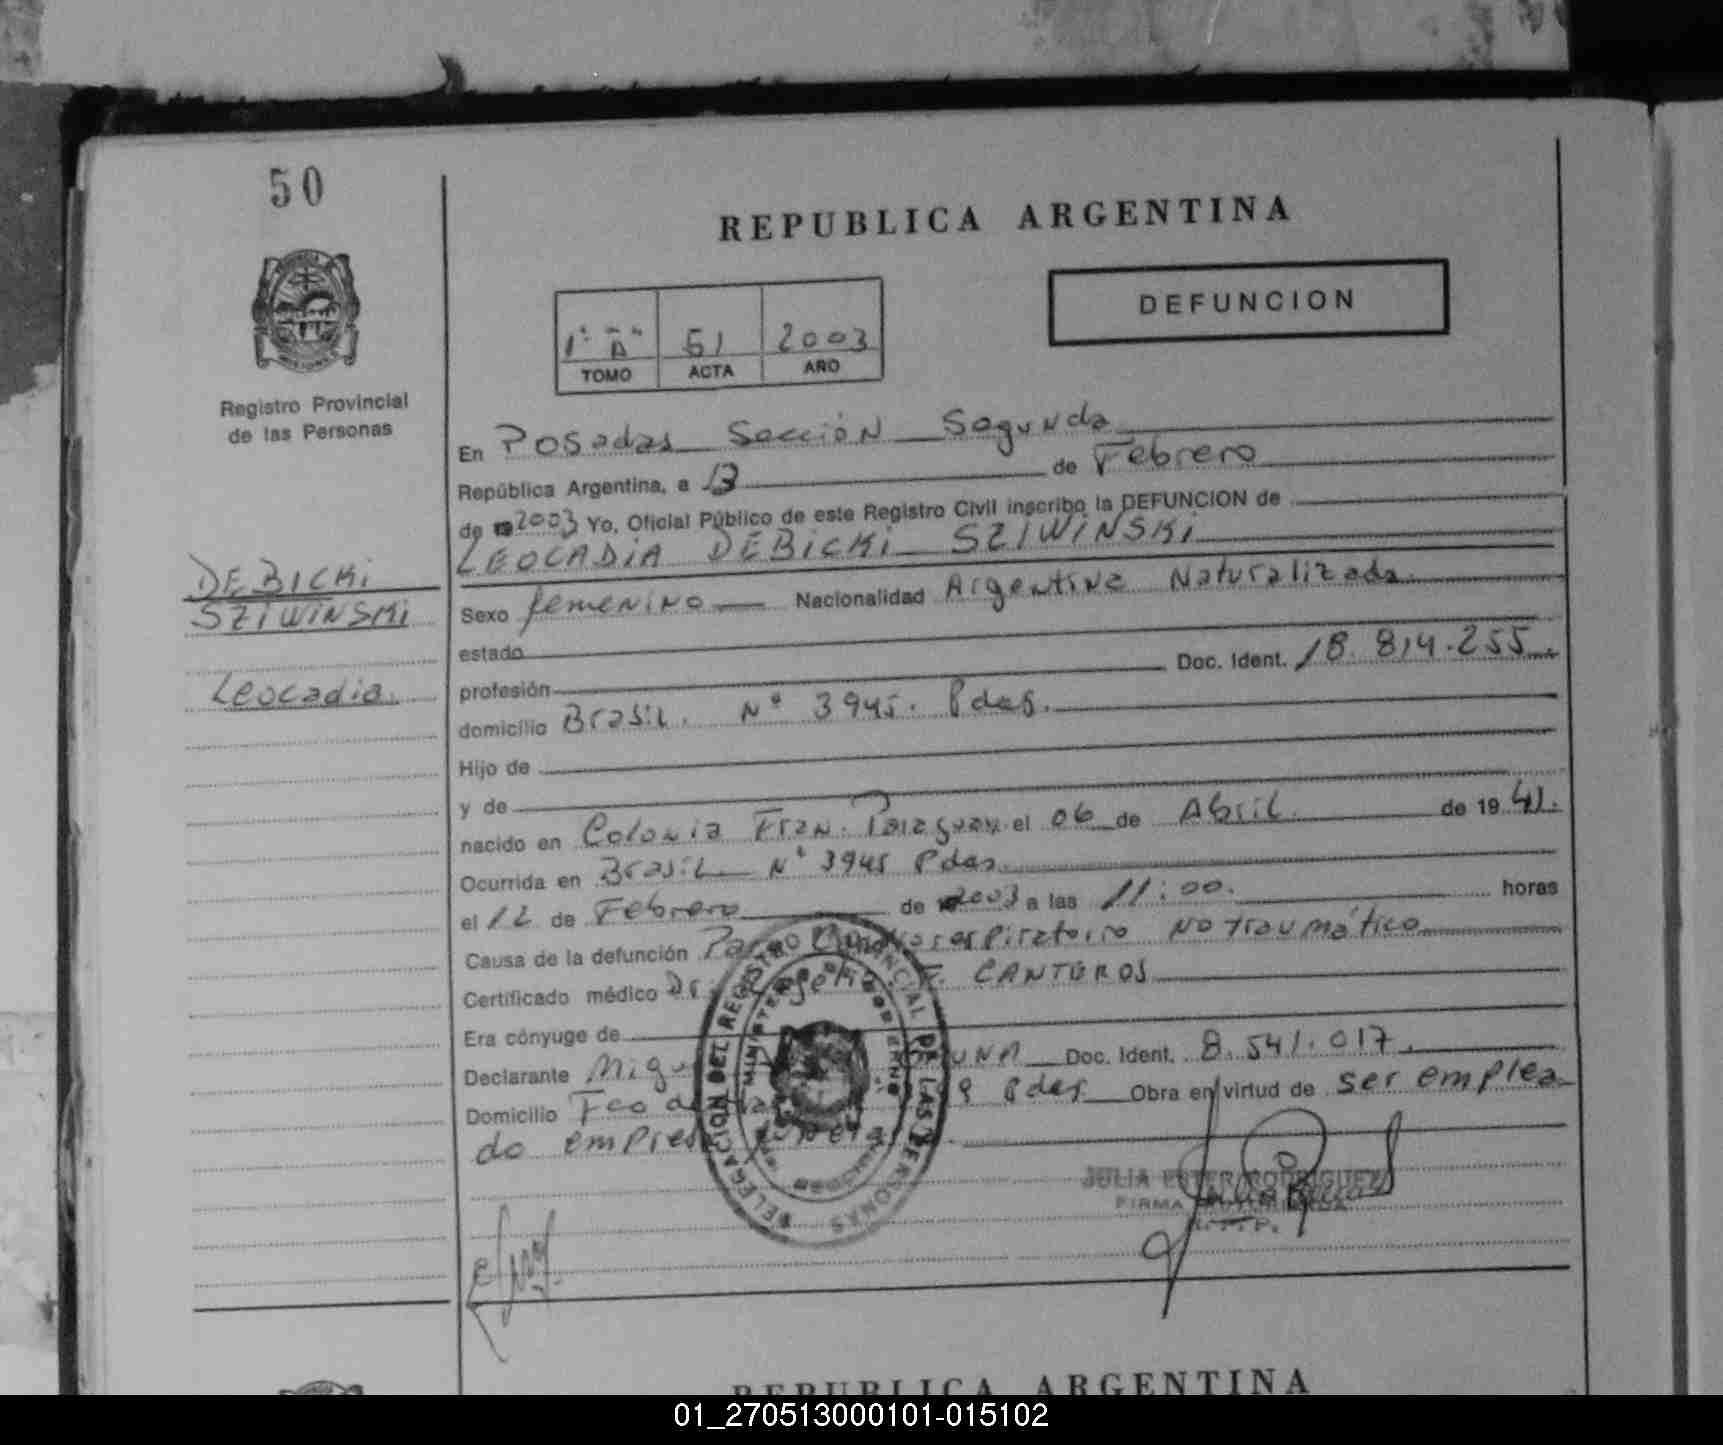 50
REPUBLICA ARGENTINA
DEFUNCION
1° "A" 51 2003
TOMO ACTA AÑO
Registro Provincial
de las Personas
En Posadas Sección Segunda
República Argentina, a 13 de Febrero
de 2003 Yo, Oficial Público de este Registro Civil inscribo la DEFUNCION de
LEOCADIA DEBICKI SZIWINSKI
DEBICKI
SZIWINSKI
Leocadia.
Sexo femenino Nacionalidad Argentina Naturalizada.
estado
profesión Doc. Ident. 18.814.255.
domicilio Brasil. N° 3945. Pdas.
Hijo de
y de
nacido en Colonia Fran. Paraguay el 06 de Abril. de 19 41.
Ocurrida en Brasil N° 3945 Pdas.
el 12 de Febrero de 2003 a las 11:00. horas
Causa de la defunción Paro Cardiorespiratorio No traumático
Certificado médico Dr. CANTEROS
Era cónyuge de
Declarante Doc. Ident. 8.541.017.
Domicilio Fco de 9 Pdas Obra en virtud de ser emplea
do empresa funeraria
DELEGACION DEL REGISTRO PROVINCIAL DE LAS PERSONAS
MINISTERIO GOBIERNO
JULIA ESTER RODRIGUEZ
FIRMA AUTORIZADA
R. P. P.
REPUBLICA ARGENTINA
01_270513000101-015102